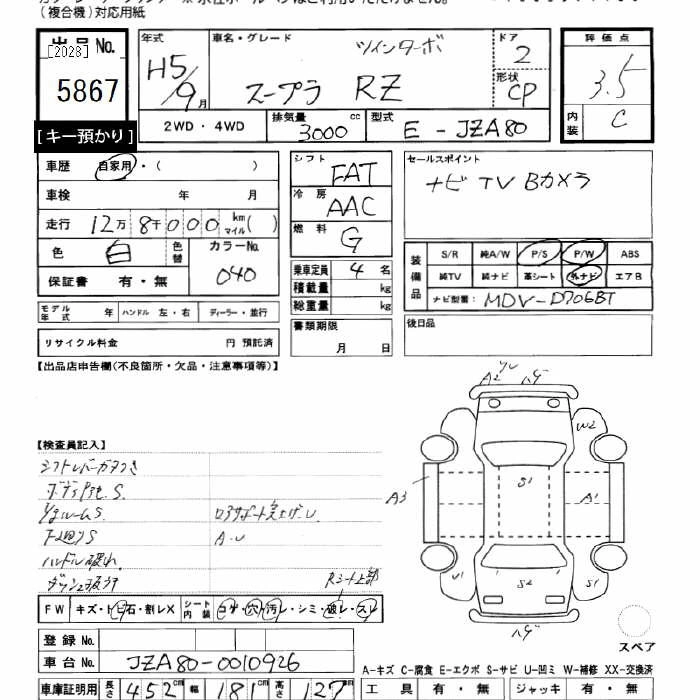 (複合機)対応用紙
出品No.
[2028]
5867
[キー預かり]
年式
H5/9月
車名・グレード
ツインターボ
スープラ RZ
ドア
2
形状
CP
評価点
3.5
内装
C
2WD・4WD
排気量
3000 cc
型式
E-JZA80
車歴 自家用・( )
車検 年 月
走行 12万8千000 km マイル( )
色 白 色替
カラーNo.
040
保証書 有・無
モデル年式 年 ハンドル 左・右 ディーラー・並行
リサイクル料金 円 預託済
シフト
FAT
冷房
AAC
燃料
G
乗車定員 4 名
積載量 kg
総重量 kg
書類期限
月 日
セールスポイント
ナビ TV Bカメラ
装備品
S/R 純A/W P/S P/W ABS
純TV 純ナビ 革シート 外ナビ エアB
ナビ型番: MDV-D706BT
後日品
【出品店申告欄(不良箇所・欠品・注意事項等)】
【検査員記入】
シフトレバーガタつき
S.
S.
A・U
S
ハンドル破れ
Rシート上部
A2
W2
S1
A3
A1
U1
S2
S1
FW キズ・トビ石・割レX シート内装 コゲ・穴・汚レ・シミ・破レ・スレ
登録No.
車台No. JZA80-0010926
車庫証明用 長さ 452cm 幅 181cm 高さ 127cm
スペア
A-キズ C-腐食 E-エクボ S-サビ U-凹ミ W-補修 XX-交換済
工具 有・無 ジャッキ 有・無